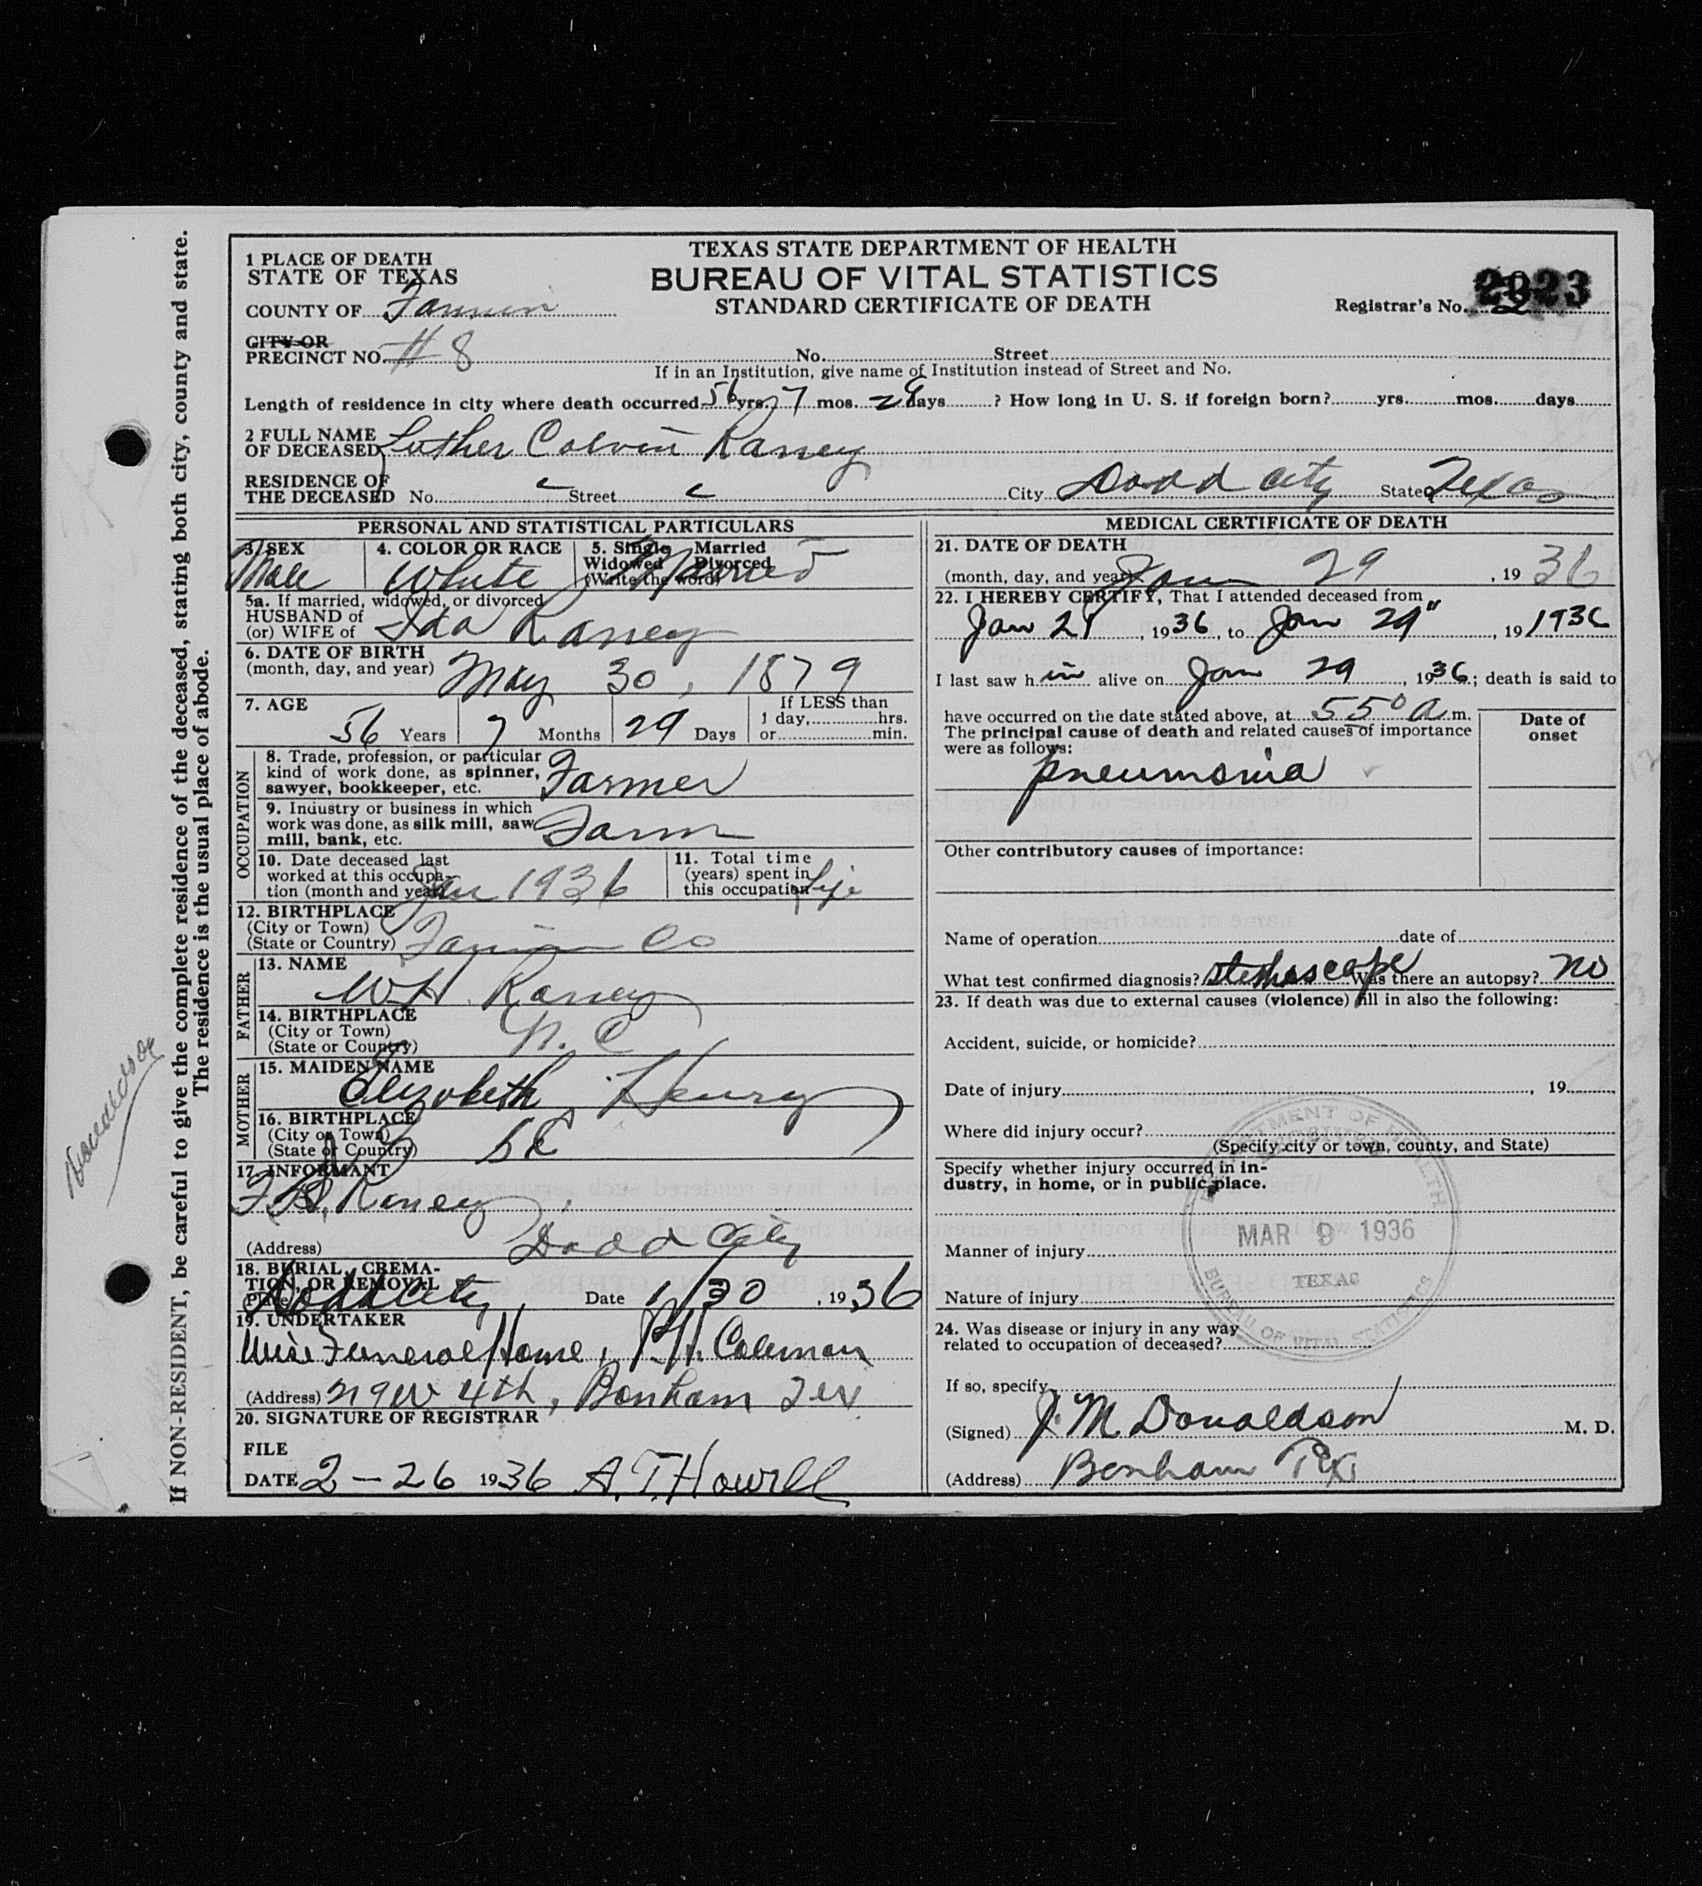 If NON-RESIDENT, be careful to give the complete residence of the deceased, stating both city, county and state.
The residence is the usual place of abode.
Donaldson
TEXAS STATE DEPARTMENT OF HEALTH
BUREAU OF VITAL STATISTICS
STANDARD CERTIFICATE OF DEATH
1 PLACE OF DEATH
STATE OF TEXAS
COUNTY OF Fannin
Registrar's No. 2 2923
CITY OR
PRECINCT NO. #8 No. Street
If in an Institution, give name of Institution instead of Street and No.
Length of residence in city where death occurred 56 yrs. 7 mos. 29 days ? How long in U. S. if foreign born? yrs. mos. days
2 FULL NAME
OF DECEASED Luther Colvin Raney
RESIDENCE OF
THE DECEASED No. Street City Dodd City State Texas
PERSONAL AND STATISTICAL PARTICULARS
3. SEX Male
4. COLOR OR RACE White
5. Single Married
Widowed Divorced
(Write the word) Married
5a. If married, widowed, or divorced
HUSBAND of
(or) WIFE of Ida Raney
6. DATE OF BIRTH
(month, day, and year) May 30, 1879
7. AGE
56 Years 7 Months 29 Days
If LESS than
1 day, hrs.
or min.
OCCUPATION
8. Trade, profession, or particular
kind of work done, as spinner,
sawyer, bookkeeper, etc. Farmer
9. Industry or business in which
work was done, as silk mill, saw
mill, bank, etc. Farm
10. Date deceased last
worked at this occupa-
tion (month and year) Jan 1936
11. Total time
(years) spent in
this occupation Life
12. BIRTHPLACE
(City or Town)
(State or Country) Fannin Co
FATHER
13. NAME
W H. Raney
14. BIRTHPLACE
(City or Town)
(State or Country) N. C
MOTHER
15. MAIDEN NAME
Elizabeth Henry
16. BIRTHPLACE
(City or Town)
(State or Country) S C
17. INFORMANT
Raney
(Address) Dodd City
18. BURIAL, CREMA-
TION, OR REMOVAL
Place Dodd City, Date 1/30, 1936
19. UNDERTAKER
Wise Funeral Home, Coleman
(Address) 219 W 4th, Bonham Tex
20. SIGNATURE OF REGISTRAR
FILE
DATE 2-26 1936 A. T. Howell
MEDICAL CERTIFICATE OF DEATH
21. DATE OF DEATH
(month, day, and year) Jan 29, 1936
22. I HEREBY CERTIFY, That I attended deceased from
Jan 21, 1936, to Jan 29", 19 1936
I last saw h im alive on Jan 29, 1936; death is said to
have occurred on the date stated above, at 5 50 a m.
The principal cause of death and related causes of importance
were as follows:
Date of
onset
pneumonia
Other contributory causes of importance:
Name of operation date of
What test confirmed diagnosis? stethoscope Was there an autopsy? no
23. If death was due to external causes (violence) fill in also the following:
Accident, suicide, or homicide?
Date of injury, 19
Where did injury occur?
(Specify city or town, county, and State)
Specify whether injury occurred in in-
dustry, in home, or in public place.
Manner of injury
Nature of injury
DEPARTMENT OF HEALTH
MAR 9 1936
TEXAS
BUREAU OF VITAL STATISTICS
24. Was disease or injury in any way
related to occupation of deceased?
If so, specify
(Signed) J. M. Donaldson M. D.
(Address) Bonham Tex